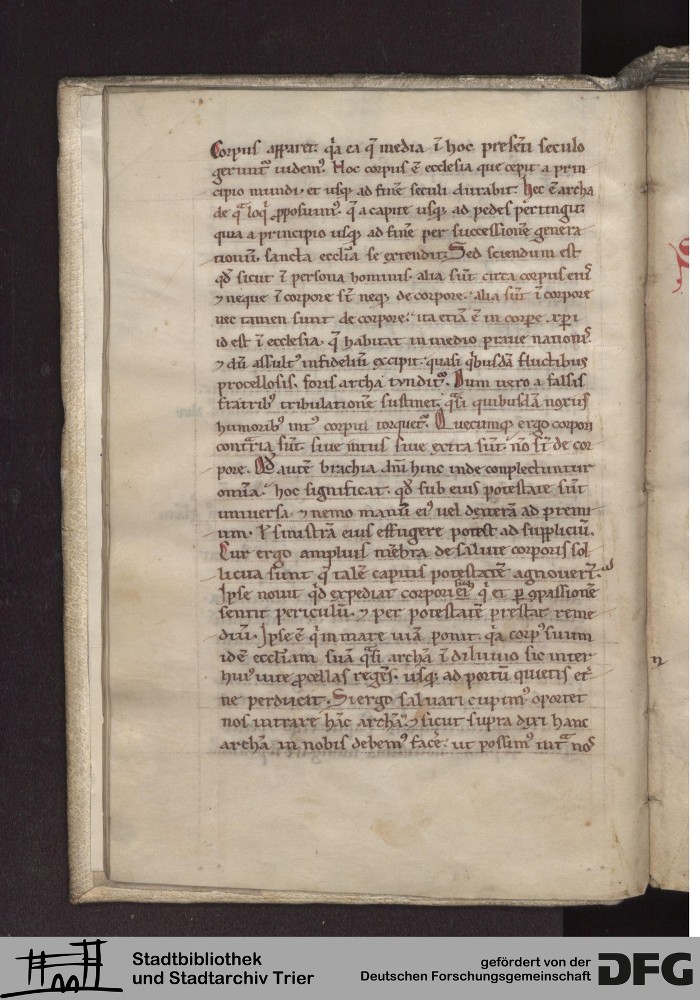 Corpus apparet: q̇a ea q̄ media ī hoc presēti seculo
gerunt᷑ uidemꝰ. Hoc corpus ē ecclesia que cepit a prin
cipio mundi. et usq; ad finē seculi durabit. Hec ē archa
de qͣ loqͥ ꝓposuimꝰ. q̄ a capite usq; ad pedes pertingit:
quia a principio usq; ad finē per successionē genera
tionū. sancta eccl̄ia se extendit. Sed sciendum est
qđ sicut ī persona hominis. alia sūt circa corpus eiꝰ
⁊ neque ī corpore sr̄t neq; de corpore. alia sūt ī corpore
nec tamen sunt de corpore: ita etiā ē in corpore .xp̄i
id est ī ecclesia. q̄ habitat in medio praue nationiꝰ.
⁊ dū assultꝰ infideliū excipit. quasi qͥbusdā fluctibus
procellosis. foris archa tundit᷑. Dum uero a falsis
fratribꝰ tribulationē sustinet. qͣsi quibusdā noxiis
humoribꝰ intꝰ corpus torquet᷑. Quecumq; ergo corpori
contͣria sūt. siue intus siue extra sūt. nō sr̄t de cor
pore. Qđ autē brachia dn̄i hinc inde conplectuntur
omīa. hoc significat. qđ sub eius potestate sūt
uniuersa. ⁊ nemo manū eiꝰ uel dexterā ad premi
um. ł sinistrā eius effugere potest ad suppliciū.
Cur ergo amplius mēbra de salute corporis sol
licita sunt q̄ talē capitis potestatē agnouerūt.
Ipse nouit qđ expediat corpori suo qͥ et ꝑ ꝯpassionē
sentit periculū. ⁊ per potestatē prestat reme
diū. Ipse ē qͥ in mare uiā ponit. q̇a corpꝰ suum
idē eccl̄iam suā qͣsi archā ī diluuio sic inter
huiꝰ uite ꝓcellas regēs. usq; ad portū quietis et̄
ne perducit. Si ergo saluari cupimꝰ oportet
nos intrare hāc archā. ⁊ sicut supra dixi hanc
archā in nobis debemꝰ facē. ut possimꝰ intͣ nos
Stadtbibliothek
und Stadtarchiv Trier
gefördert von der
Deutschen Forschungsgemeinschaft
DFG